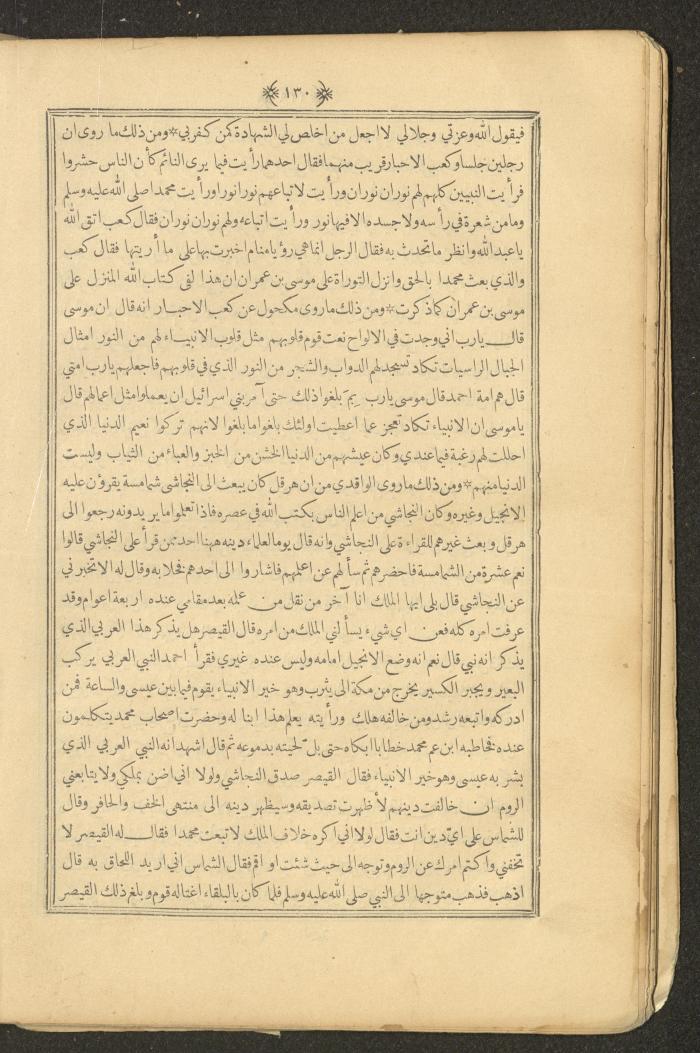 ١٣٠
فيقول الله وعزتي وجلالي لا اجعل من اخلص لي الشهادة كمن كفر بي * ومن ذلك ما روى ان
رجلين جلسا وكعب الاحبار قريب منهما فقال احدهما رأيت فيما يرى النائم كأن الناس حشروا
فرأيت النبيين كلهم لهم نوران نوران ورأيت لاتباعهم نورا نورا ورأيت محمدا صلى الله عليه وسلم
وما من شعرة في رأسه ولا جسده الا فيها نور ورأيت اتباعه ولهم نوران نوران فقال كعب اتق الله
يا عبد الله وانظر ما تحدث به فقال الرجل انما هي رؤيا منام اخبرت بها على ما أريتها فقال كعب
والذي بعث محمدا بالحق وانزل التوراة على موسى بن عمران ان هذا لفى كتاب الله المنزل على
موسى بن عمران كما ذكرت * ومن ذلك ما روى مكحول عن كعب الاحبار انه قال ان موسى
قال يارب اني وجدت في الالواح نعت قوم قلوبهم مثل قلوب الانبياء لهم من النور امثال
الجبال الراسيات تكاد تسجد لهم الدواب والشجر من النور الذي في قلوبهم فاجعلهم يارب امتي
قال هم امة احمد قال موسى يارب بم بلغوا ذلك حتى آمر بني اسرائيل ان يعملوا مثل اعمالهم قال
ياموسى ان الانبياء تكاد تعجز عما اعطيت اولئك بلغوا ما بلغوا لانهم تركوا نعيم الدنيا الذي
احللت لهم رغبة فيما عندي وكان عيشهم من الدنيا الخشن من الخبز والعباء من الثياب وليست
الدنيا منهم * ومن ذلك ما روى الواقدي من ان هرقل كان يبعث الى النجاشى شمامسة يقرؤن عليه
الانجيل وغيره وكان النجاشي من اعلم الناس بكتب الله في عصره فاذا تعلموا ما يريدونه رجعوا الى
هرقل وبعث غيرهم للقراءة على النجاشي وانه قال يوما لعلماء دينه ههنا احد ممن قرأ على النجاشي قالوا
نعم عشرة من الشمامسة فاحضرهم ثم سألهم عن اعلمهم فاشاروا الى احدهم فخلا به وقال له الا تخبرني
عن النجاشي قال بلى ايها الملك انا آخر من نقل من عمله بعد مقامي عنده اربعة اعوام وقد
عرفت امره كله فعن اي شيء يسألني الملك من امره قال القيصر هل يذكر هذا العربي الذي
يذكر انه نبي قال نعم انه وضع الانجيل امامه وليس عنده غيري فقرأ احمد النبي العربي يركب
البعير ويجبر الكسير يخرج من مكة الى يثرب وهو خير الانبياء يقوم فيما بين عيسى والساعة فمن
ادركه واتبعه رشد ومن خالفه هلك ورأيته يعلم هذا ابنا له وحضرت اصحاب محمد يتكلمون
عنده فخاطبه ابن عم محمد خطابا ابكاه حتى بلّ لحيته بدموعه ثم قال اشهد انه النبي العربي الذي
بشر به عيسى وهو خير الانبياء فقال القيصر صدق النجاشي ولولا اني اضن بملكي ولا يتابعني
الروم ان خالفت دينهم لأظهرت تصديقه وسيظهر دينه الى منتهى الخف والحافر وقال
للشماس على ايّ دين انت فقال لولا اني اكره خلاف الملك لاتبعت محمدا فقال له القيصر لا
تخفني واكتم امرك عن الروم وتوجه الى حيث شئت او اقم فقال الشماس اني اريد اللحاق به قال
اذهب فذهب متوجها الى النبي صلى الله عليه وسلم فلما كان بالبلقاء اغتاله قوم وبلغ ذلك القيصر